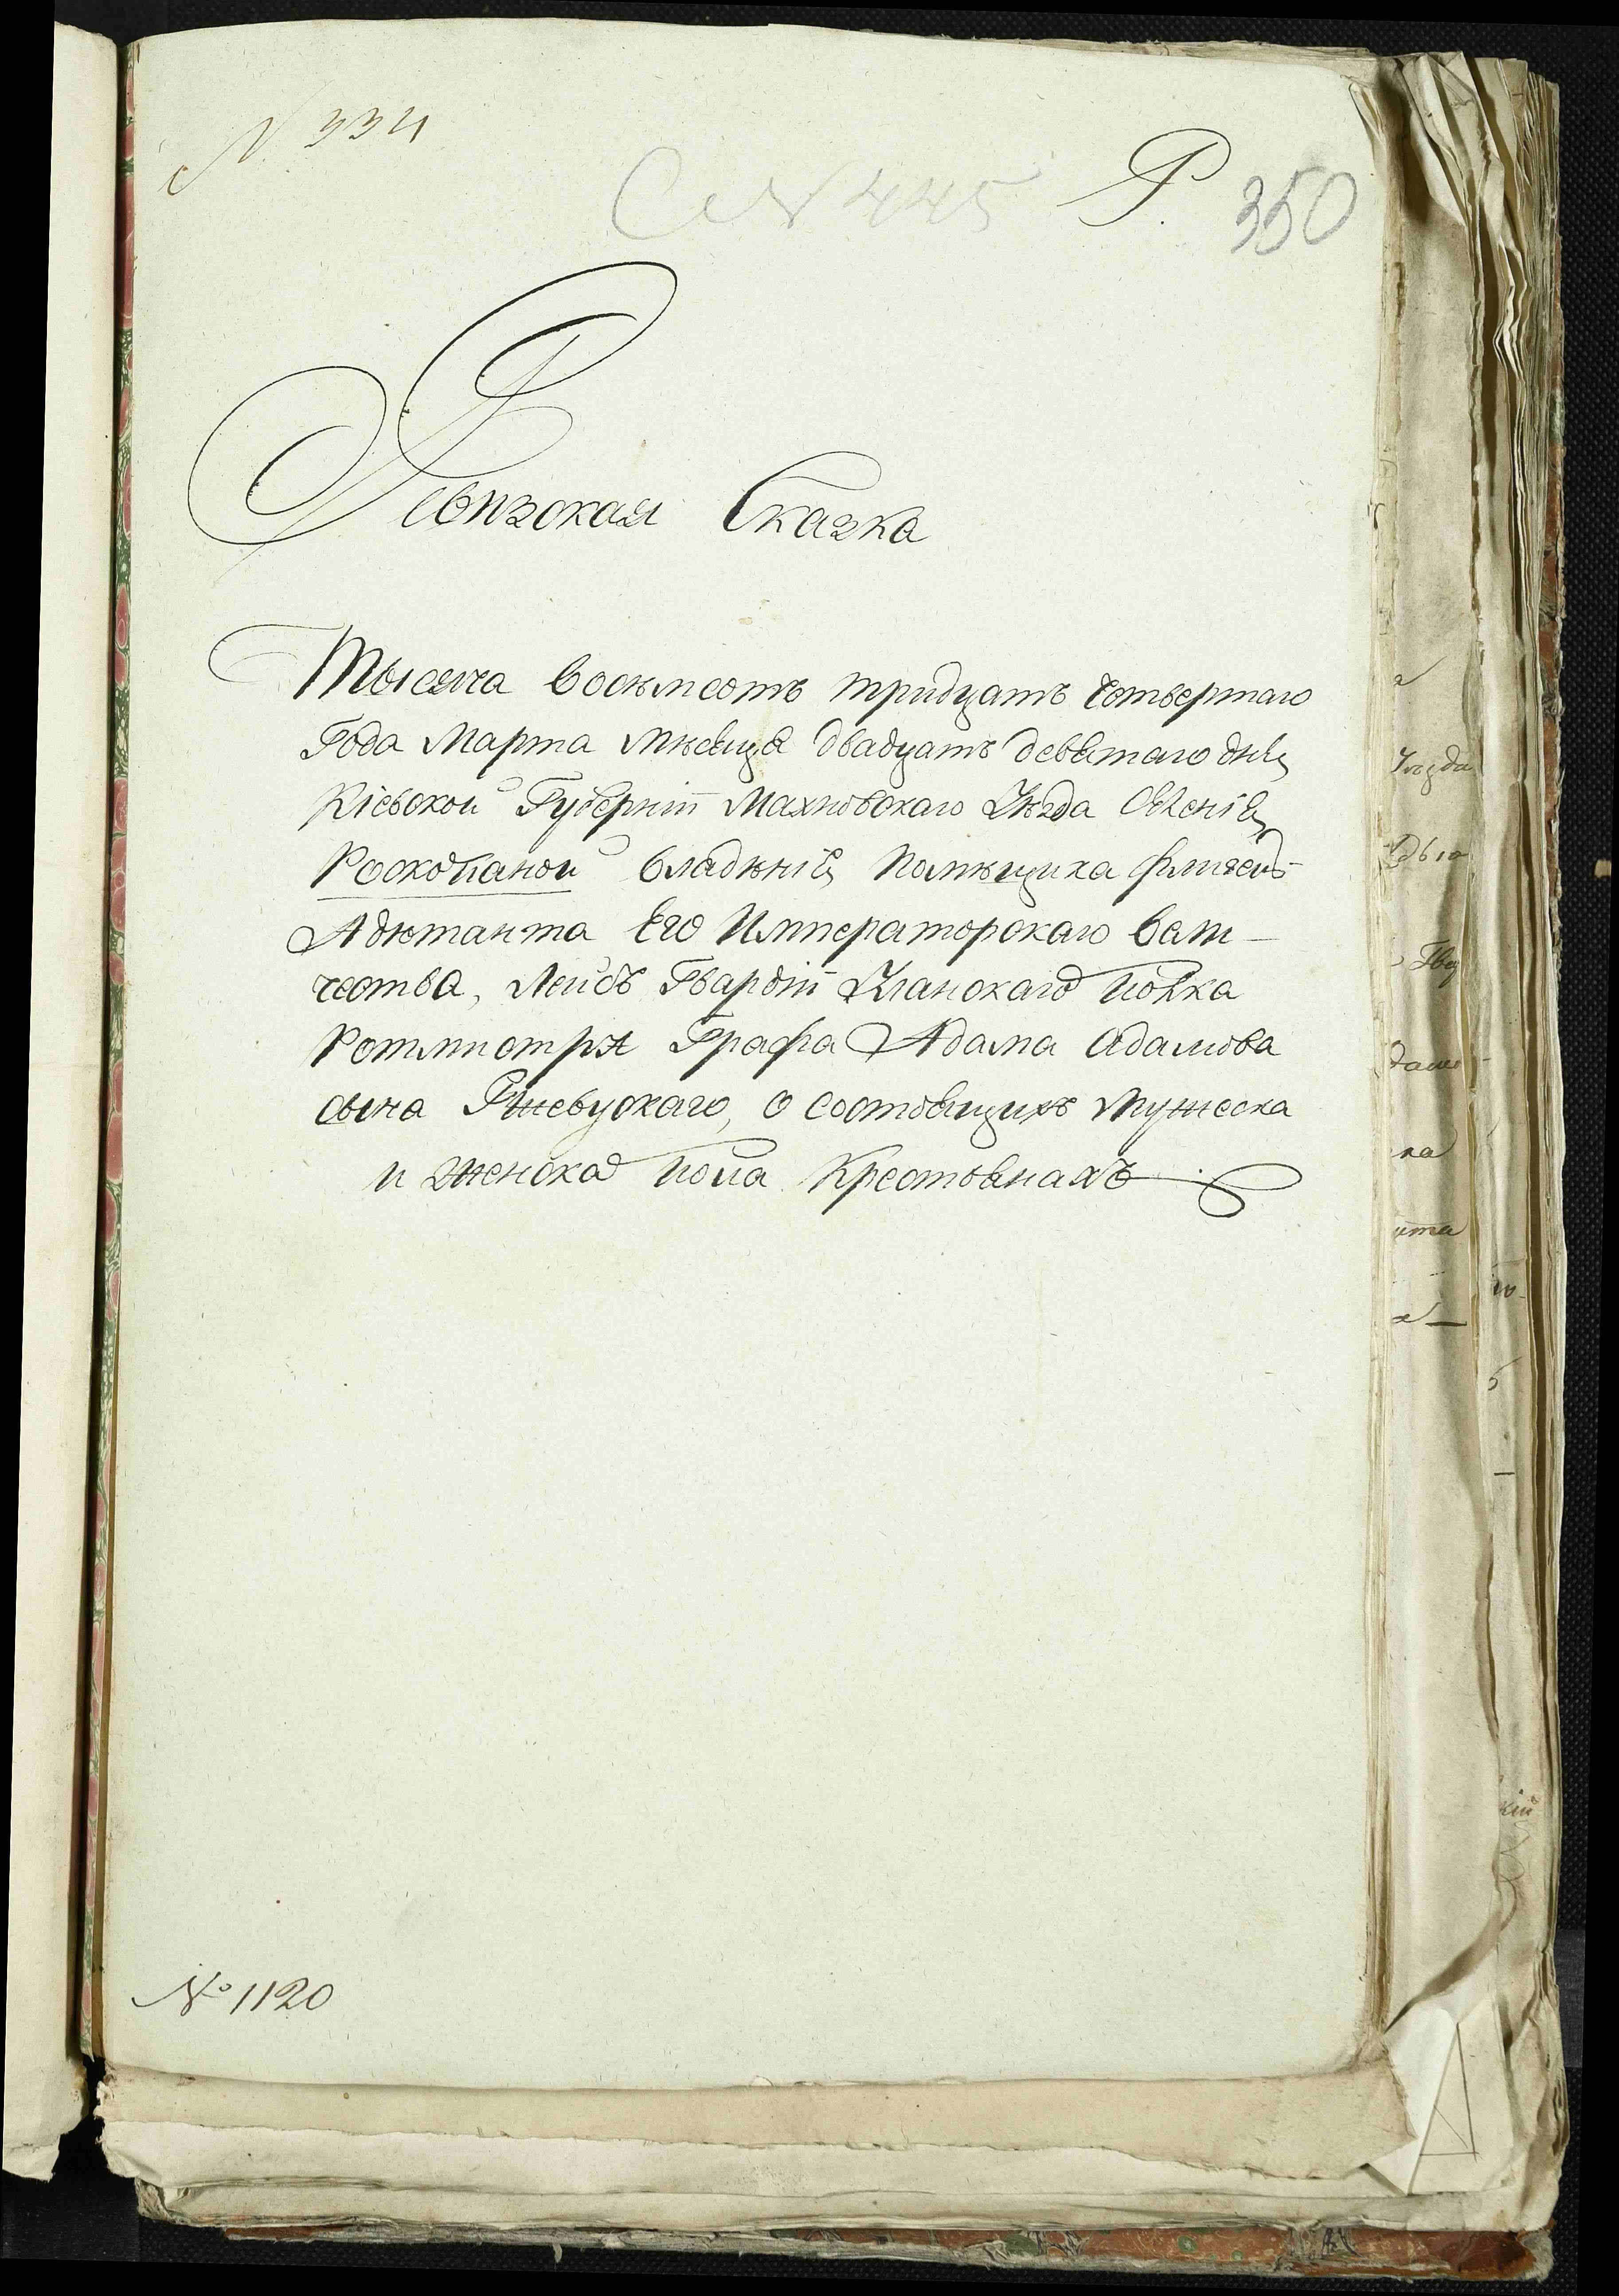 N 334
N 445 Р. 350
Ревизская Сказка
Тысяча восемсотъ тридцать четвертаго
Года Марта мѣсяца двадцать девятаго дня
Кіевской Губерніи Махновскаго Уѣзда Селенія
Роскопаной владѣнія Помѣщика флигель-
Адютанта Его Императорскаго Вели-
чества, Лейбъ Гвардіи Уланскаго Полка
Ротмистра Графа Адама Адамова
сына Ржевускаго, о состоящихъ мужеска
и женска пола Крестьянахъ
№ 1120